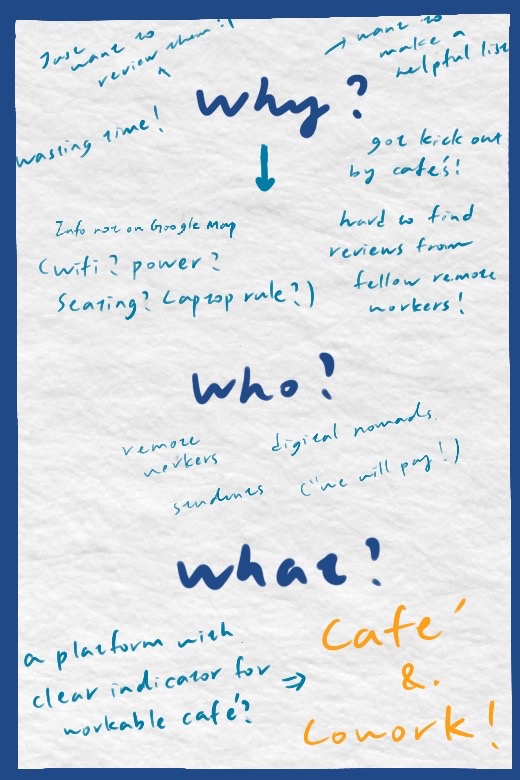 Just want to
review them!!
→ want to
make a
helpful list
Why?
wasting time!
got kick out
by café's!
Info not on Google Map
(wifi? power?
Seating? Laptop rule?)
hard to find
reviews from
fellow remote
workers!
Who?
remote
workers
digital nomads
students
("we will pay!)
What?
a platform with
clear indicator for
workable café?
⇒
Café
&.
Cowork!